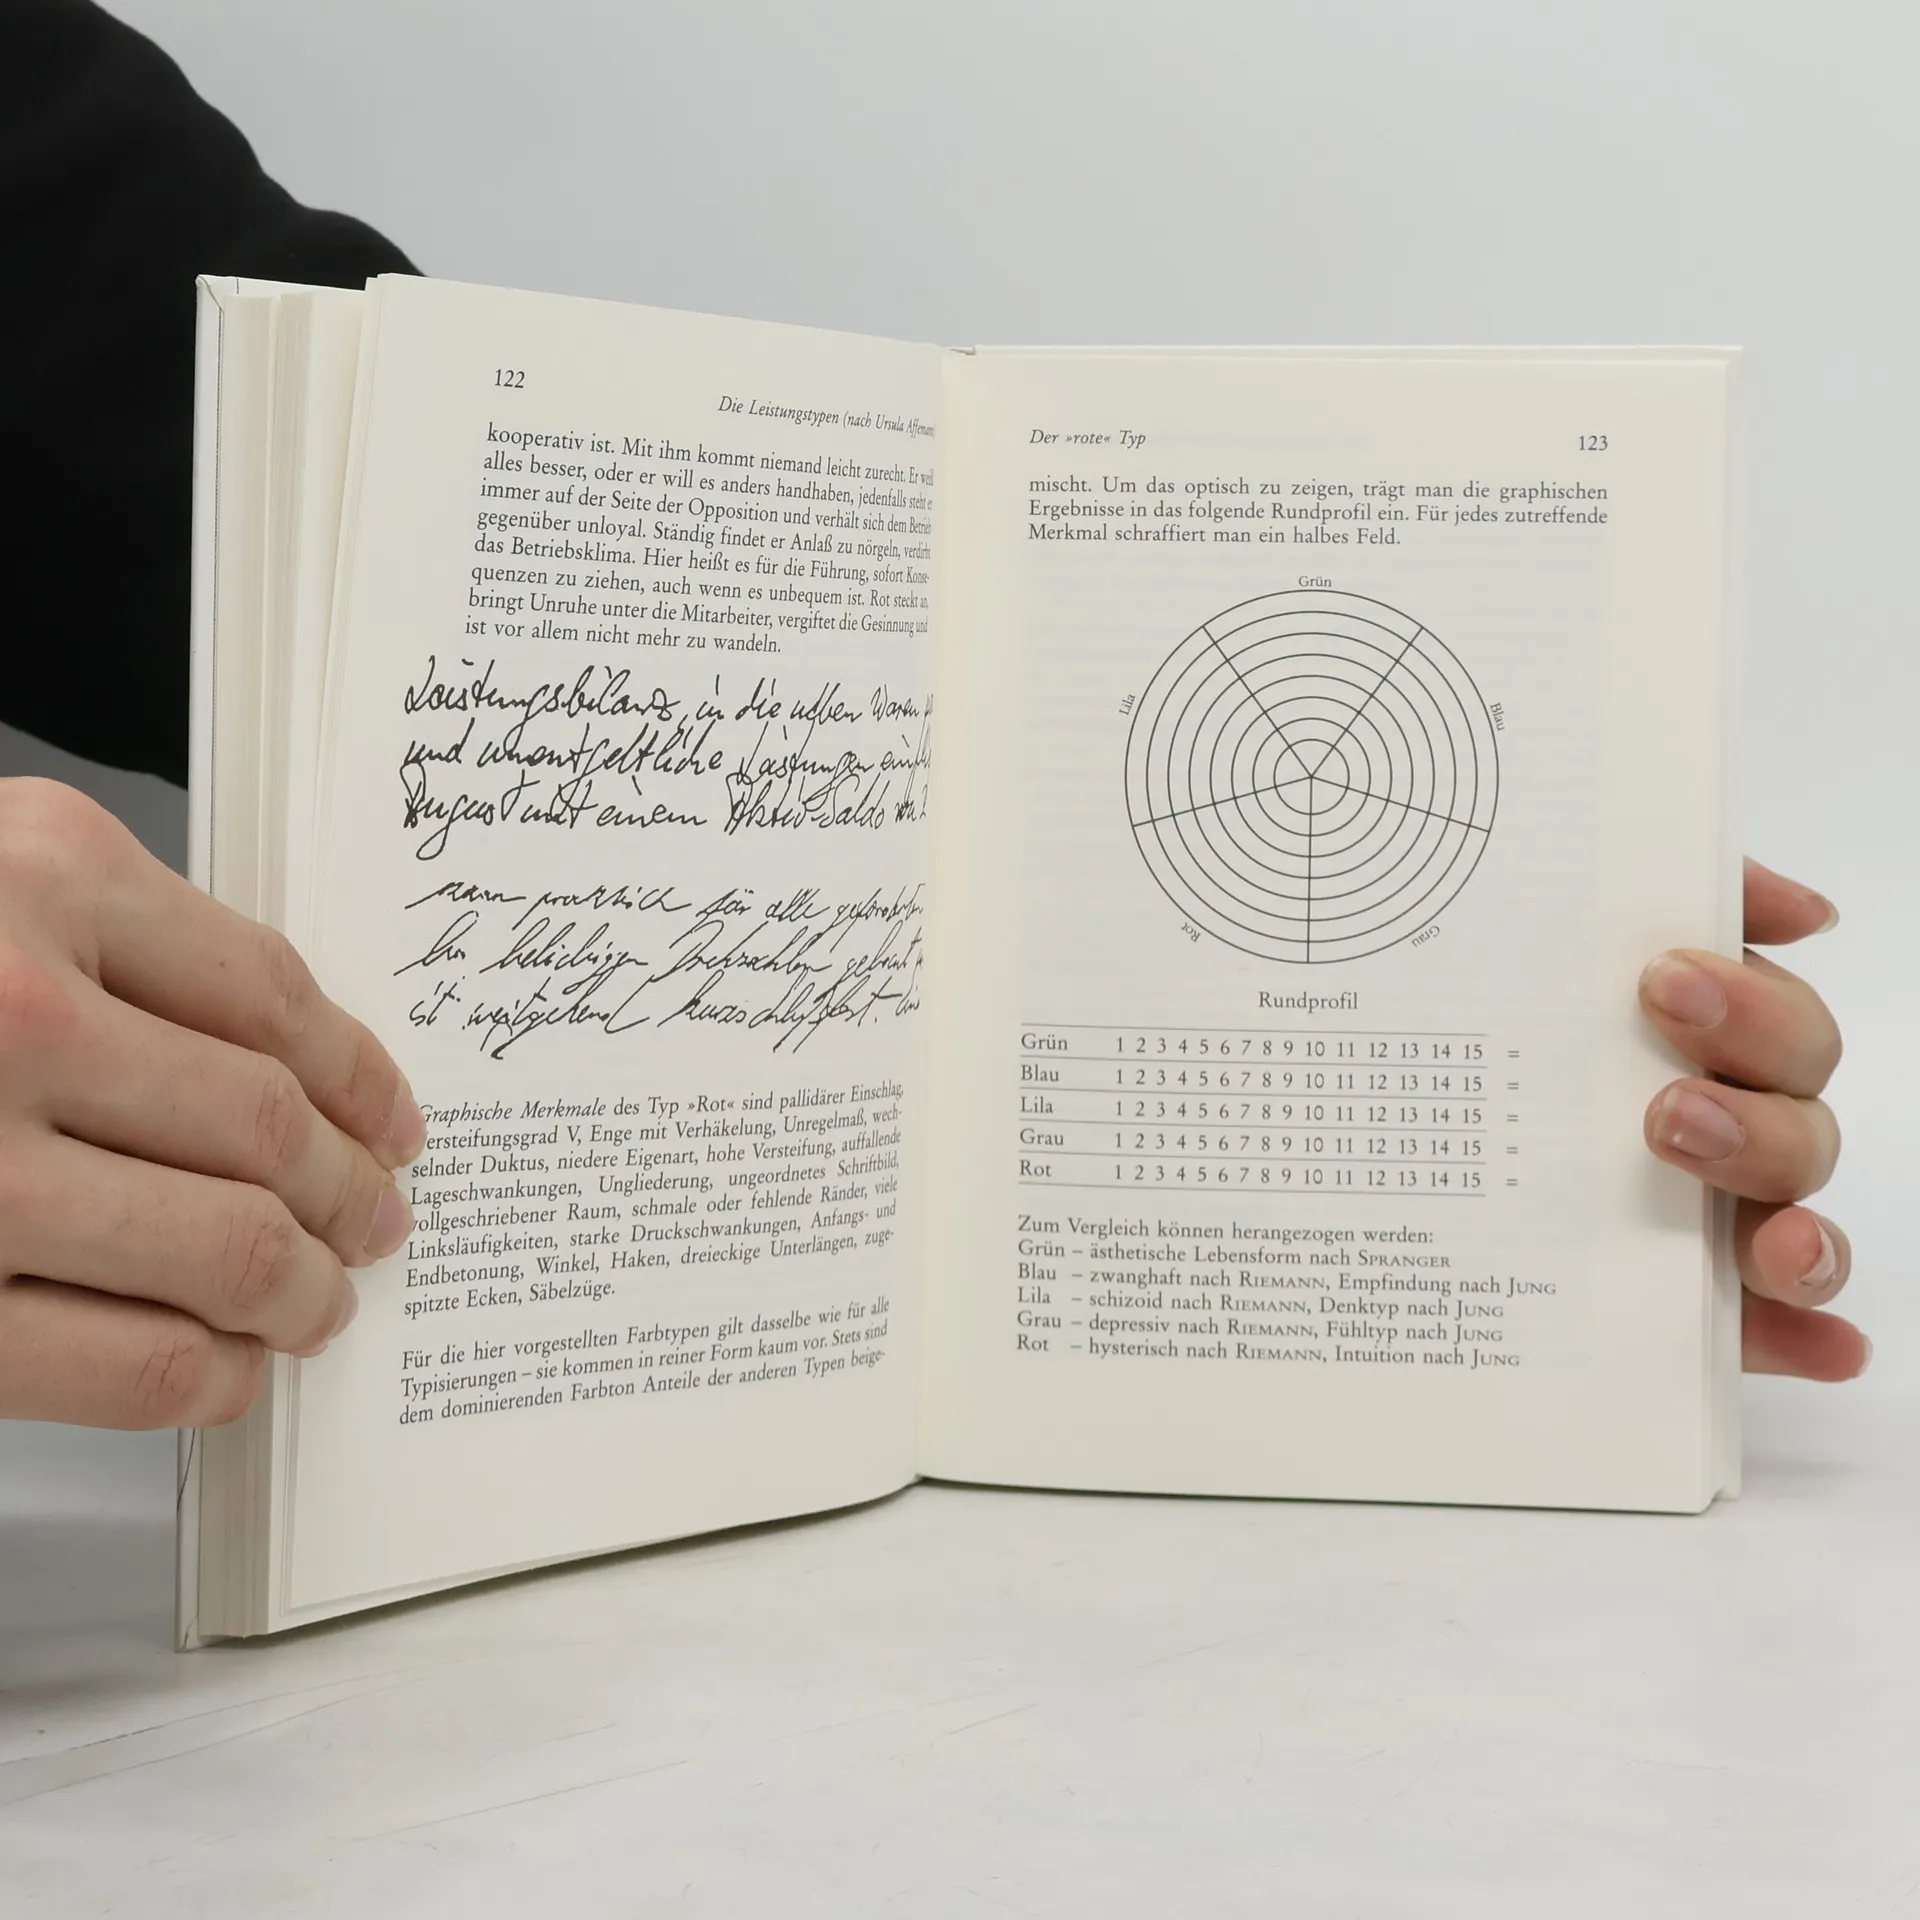 122
Die Leistungstypen (nach Ursula
kooperativ ist. Mit ihm kommt niemand leicht zurecht. Er
alles besser, oder er will es anders handhaben, jedenfalls steht
immer auf der Seite der Opposition und verhält sich dem
gegenüber unloyal. Ständig findet er Anlaß zu nörgeln,
das Betriebsklima. Hier heißt es für die Führung, sofort Konse-
quenzen zu ziehen, auch wenn es unbequem ist. Rot steckt an,
bringt Unruhe unter die Mitarbeiter, vergiftet die Gesinnung und
ist vor allem nicht mehr zu wandeln.
Leistungsbilanz, in die neben Waren
und unentgeltliche Leistungen
August mit einem Aktiv-Saldo
praktisch für alle
beliebigen Drehzahlen gebaut
ist weitgehend kurzschlußfest.
Graphische Merkmale des Typ »Rot« sind pallidärer Einschlag,
ersteifungsgrad V, Enge mit Verhäkelung, Unregelmaß, wech-
selnder Duktus, niedere Eigenart, hohe Versteifung, auffallende
Lageschwankungen, Ungliederung, ungeordnetes Schriftbild,
vollgeschriebener Raum, schmale oder fehlende Ränder, viele
Linksläufigkeiten, starke Druckschwankungen, Anfangs- und
Endbetonung, Winkel, Haken, dreieckige Unterlängen, zuge-
spitzte Ecken, Säbelzüge.
Für die hier vorgestellten Farbtypen gilt dasselbe wie für alle
Typisierungen – sie kommen in reiner Form kaum vor. Stets sind
dem dominierenden Farbton Anteile der anderen Typen beige-
Der »rote« Typ 123
mischt. Um das optisch zu zeigen, trägt man die graphischen
Ergebnisse in das folgende Rundprofil ein. Für jedes zutreffende
Merkmal schraffiert man ein halbes Feld.
Grün
Lila
Blau
Rot
Grau
Rundprofil
Grün 1 2 3 4 5 6 7 8 9 10 11 12 13 14 15 =
Blau 1 2 3 4 5 6 7 8 9 10 11 12 13 14 15 =
Lila 1 2 3 4 5 6 7 8 9 10 11 12 13 14 15 =
Grau 1 2 3 4 5 6 7 8 9 10 11 12 13 14 15 =
Rot 1 2 3 4 5 6 7 8 9 10 11 12 13 14 15 =
Zum Vergleich können herangezogen werden:
Grün – ästhetische Lebensform nach SPRANGER
Blau – zwanghaft nach RIEMANN, Empfindung nach JUNG
Lila – schizoid nach RIEMANN, Denktyp nach JUNG
Grau – depressiv nach RIEMANN, Fühltyp nach JUNG
Rot – hysterisch nach RIEMANN, Intuition nach JUNG